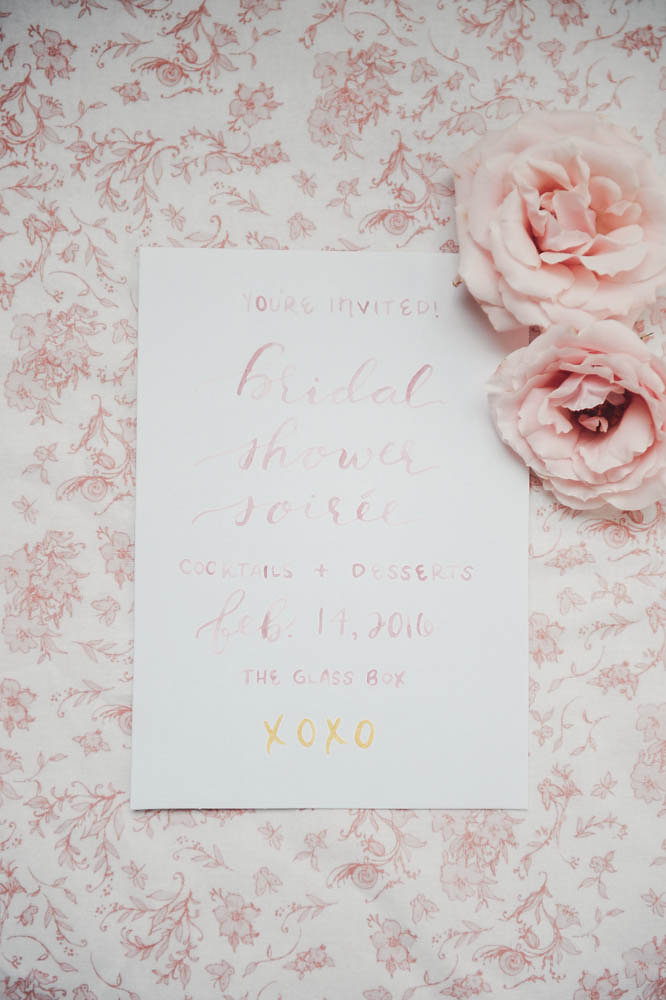 YOU'RE INVITED!
bridal
shower
soirée
COCKTAILS + DESSERTS
feb. 14, 2016
THE GLASS BOX
XOXO